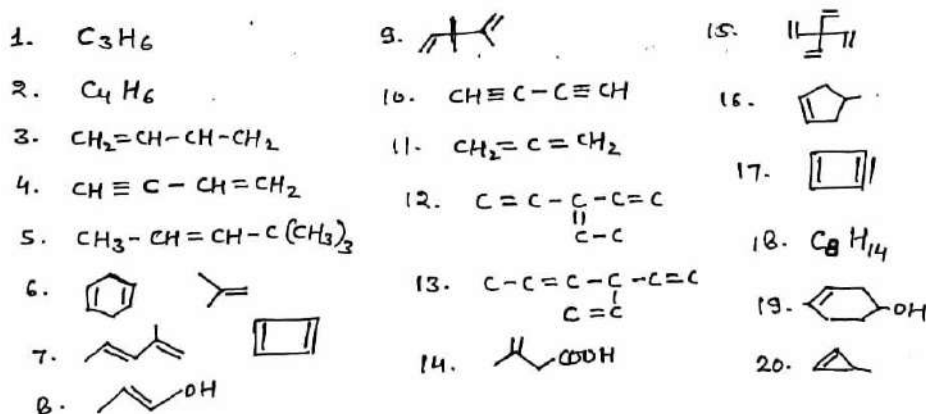 1. C3H6
2. C4H6
3. CH2=CH-CH-CH2
4. CH≡C-CH=CH2
5. CH3-CH=CH-C(CH3)3
6.
7.
8. OH
9.
10. CH≡C-C≡CH
11. CH2=C=CH2
12. C=C-C-C=C
||
C-C
13. C-C=C-C-C=C
|
C=C
14. COOH
15.
16.
17.
18. C8H14
19. OH
20.